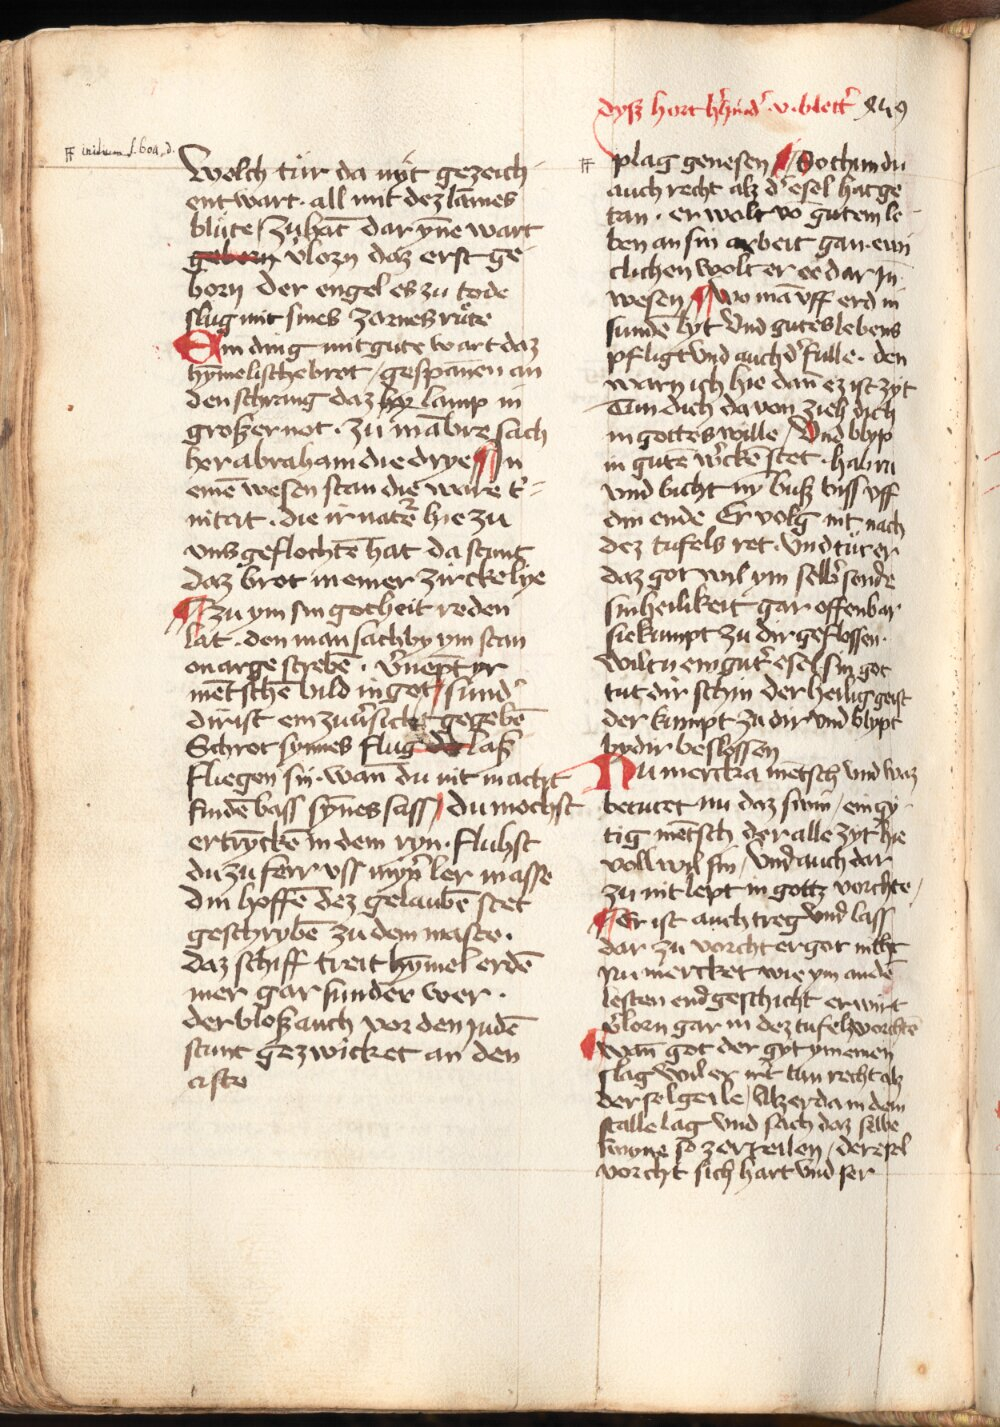 dysz hort hind v. blett
Welch tür da nyt gezeich
ent wart · all mit dez lames
blüte / zu hāt dar yñe wart
v̓lorn daz erst ge
born der engel es zu tode
slug mit sines zornes růte
Ein ding mit gute wart daz
hym̄elische brot / gespānen an
den schrang daz lamp in
groszer not · zu mābre sach
her abraham die drye ¶ In
einē wesen stan die ware t̓i=
nitat · die ir natē hie zu
vns geflochtē hat da stunt
daz brot in einer zirckelye
¶ zu ym sin gotheit reden
lat · den man sach by ym stan
on arge strebē · v̓nept er
mētschē bild in got / sund̓
dir ist ein zuv̓sicht gegebē
Schrot synnes flug lasz
fliegen sin · wan̄ du nit macht
findē bass synes sass / du mochst
ertryckē in dem ryn · fluhst
du zu ferr vss myn̓ ler masse
din hoffē dez gelaubē stet
geschrybē zu dem maste ·
daz schiff treit hym̄el erdē
mer gar sunder wer ·
der blosz auch vor den judē
stunt gezwicket an den
aste
plag genesen ¶ So thun du
auch recht alz d̓ esel hat ge
tan · er wolt vō gutem le
ben an sin arbeit gan · ewi
clichen wolt er ee dar in
wesen ¶ wo mā vff erd in
sundē lyt vnd gutes lebens
pfligt vnd auch d̓ fulle · den
warn ich hie dan̄ ez ist zyt
Tun dich da von zieh dich
in gottes wille / Vnd blyp
in gutē w̓ckē stet · hab ru
vnd bicht ny busz biss vff
din ende Er volg nit nach
dez tufels ret · vnd tüt er
daz got wil ym selb̓ sende
sin heilikeit gar offenbar
sie kumpt zu dir geflossen ·
Wiltu ein gut̓ esel sin got
tut dir schin der heilig geist
der kumpt zu dir vnd blypt
by dir beslossen
Nu mercka mētsch vnd waz
betutet nu daz swin / ein gy
tig mētsch der alle zyt hie
voll wil sin / vnd auch dar
zu nit lept in gottz vorchte /
¶ Er ist auch treg vnd lass
dar zu vorcht er got nicht
Nu mercket wie ym an dē
lesten end geschicht er wirt
v̓lorn gar in dez tufelz vorchtē
wan̄ got der gyt ym einen
slag wil er nit tun recht alz
der sel geile / Alz er da in dem
stalle lag vnd sach daz selbe
swyne so zerteilen / der esel
vorcht sich hart vnd ser